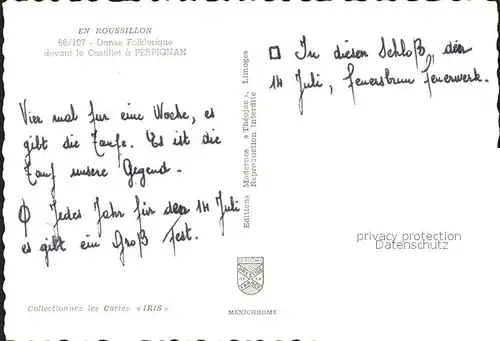 EN ROUSSILLON
66/107 - Danse Folklorique
devant le Castillet à PERPIGNAN
Vier mal fur eine Woche, es
gibt die Taufe. Es ist die
Tauf unsere Gegend.
Jedes Jahr für den 14 Juli
es gibt ein Groß Fest.
Collectionnez les Cartes «IRIS»
Editions Modernes «Théojac», Limoges
Reproduction Interdite
MEXICHROME
In diesen Schloß, den
14 Juli, feuersbrun feuerwerk.
privacy protection
Datenschutz